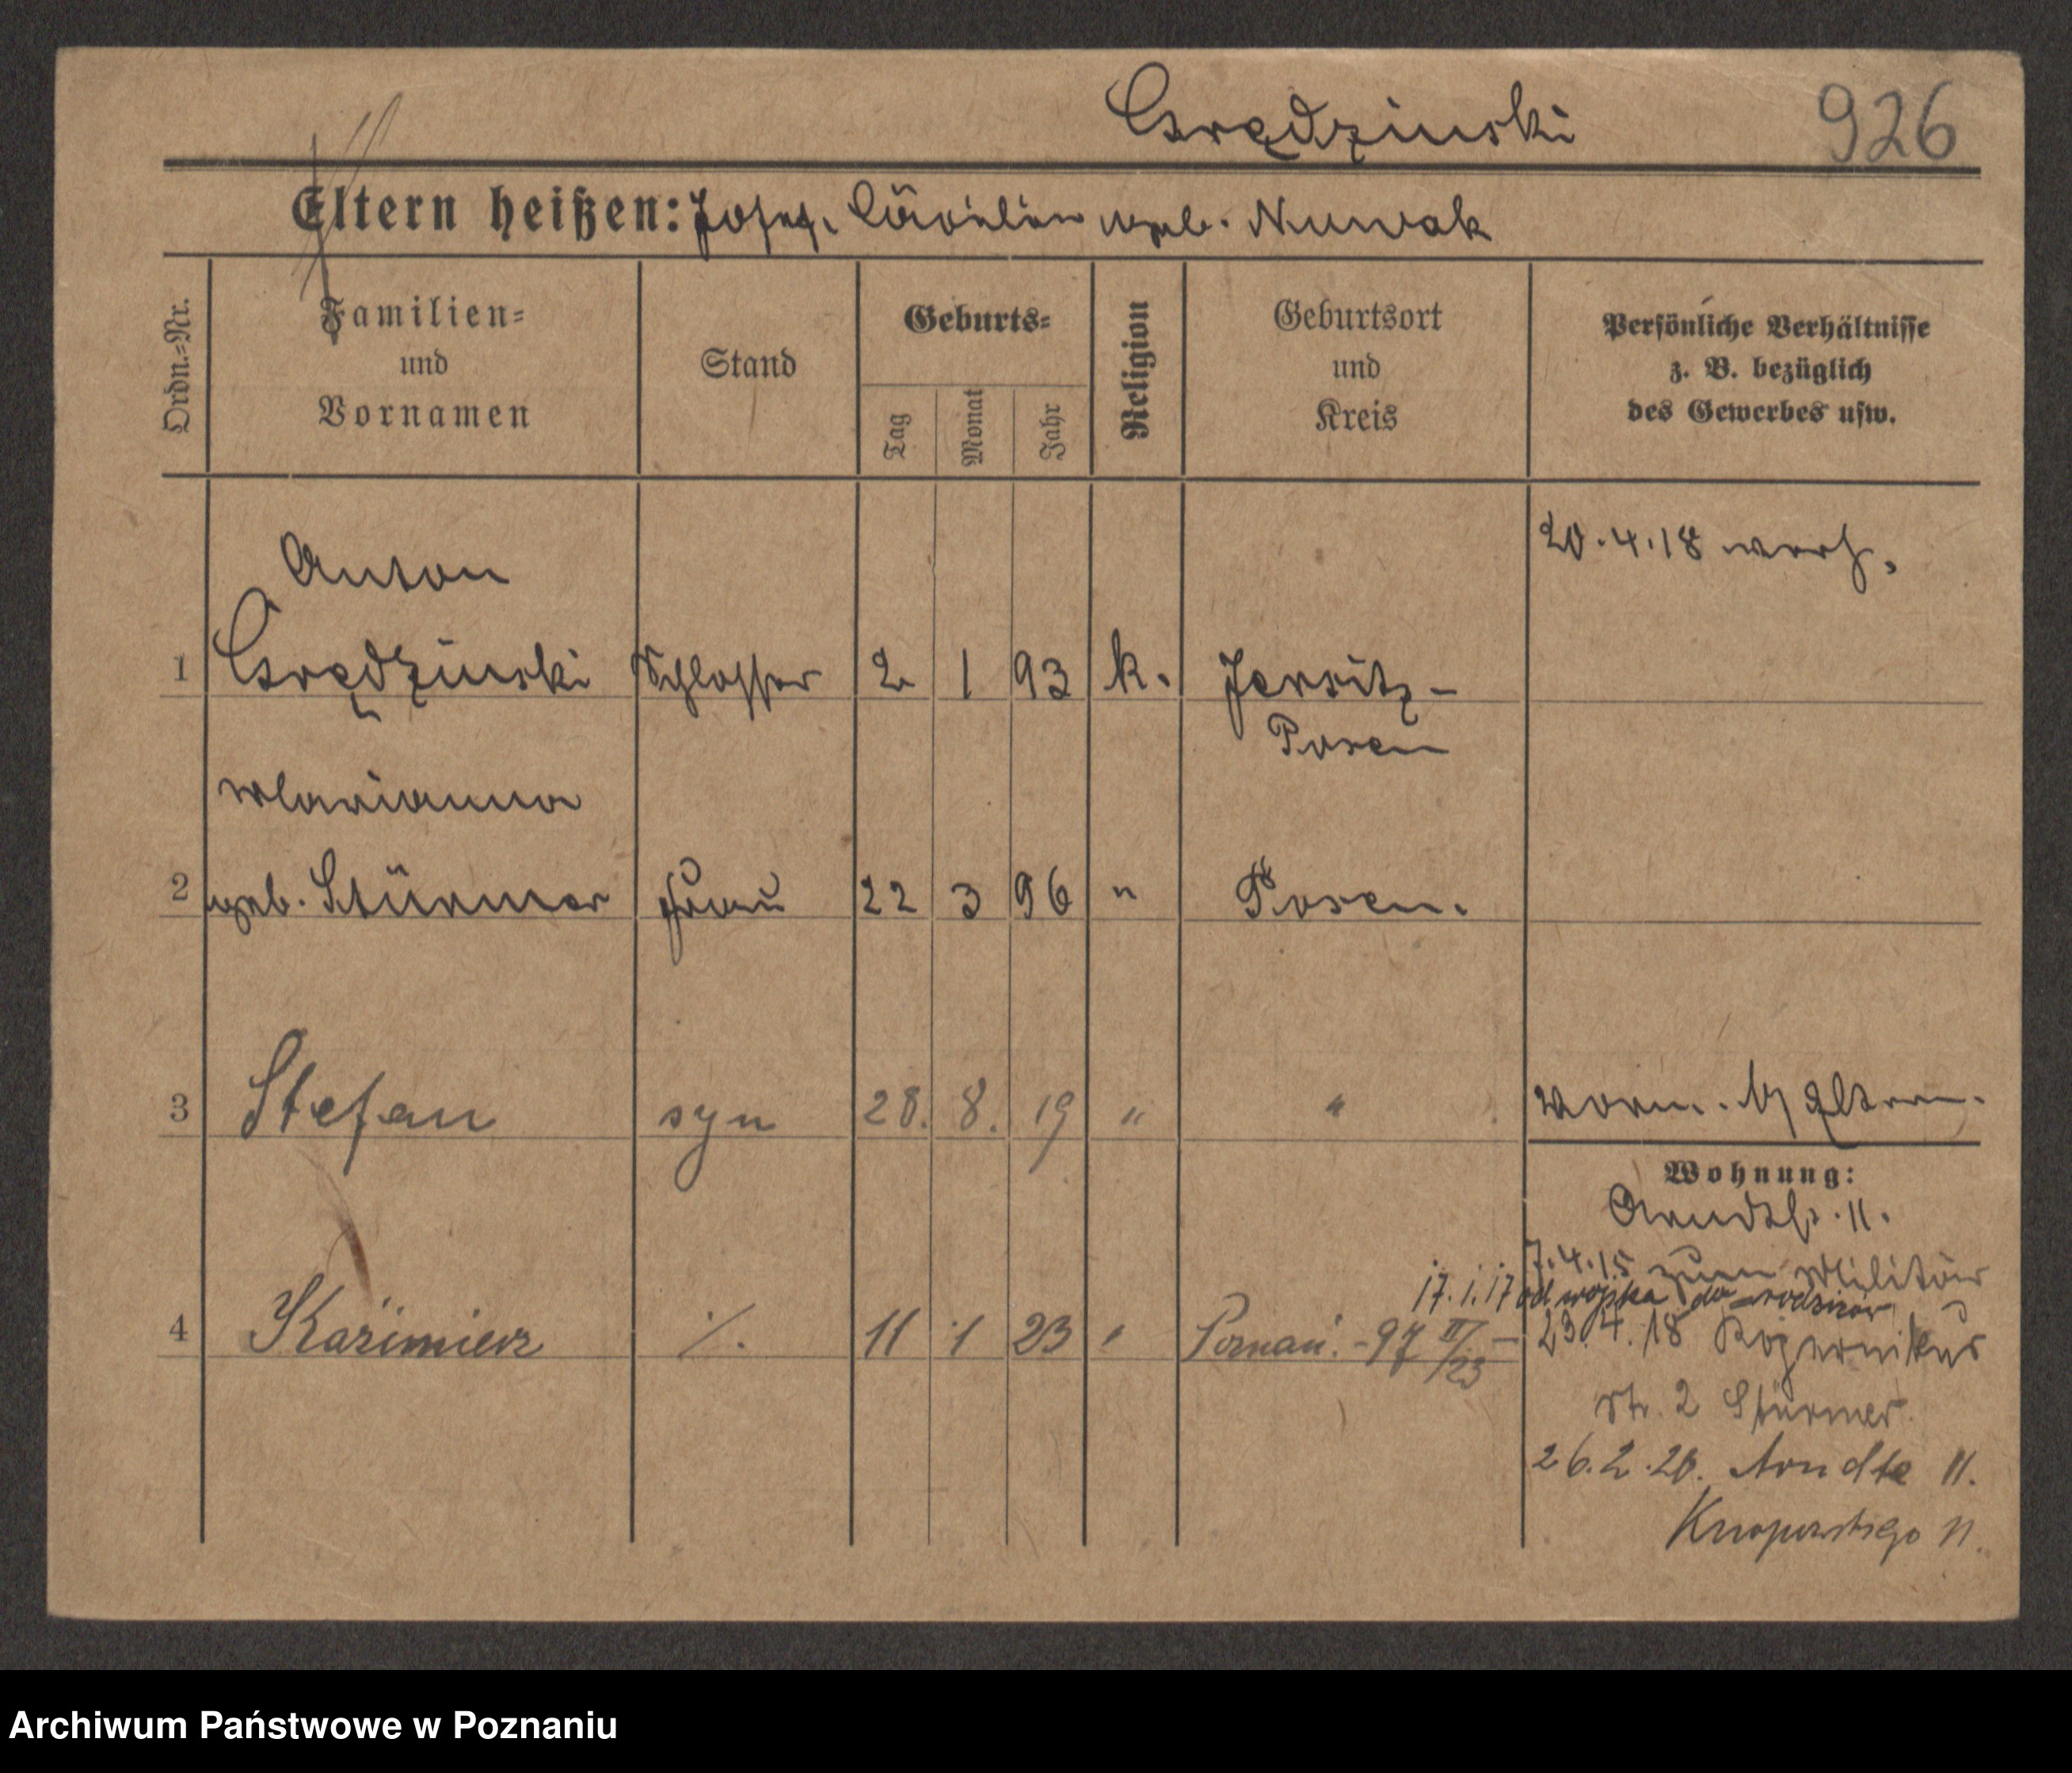 Grędzinski 926
Eltern heißen: Josef, Cäcilia geb. Nuwak
Ordn.-Nr.
Familien-
und
Vornamen
Stand
Geburts-
Tag
Monat
Jahr
Religion
Geburtsort
und
Kreis
Persönliche Verhältnisse
z. B. bezüglich
des Gewerbes usw.
20.4.18 verh.
Anton
1 Grędzinski Schlosser 2 1 93 k. Jersitz-
Posen
Marianna
2 geb. Stürmer Frau 22 3 96 " Posen.
3 Stefan syn 28. 8. 19 " "
Eltern.
Wohnung:
Arndtstr. 11.
7.4.15 zum Militär
17.1.17 od wojska do rodziców
4 Kazimierz ./. 11 1 23 " Poznań. -97 II/23 -
23.4.18 Kopernikus
str. 2 Stürmer.
26.2.20. Arndta 11.
Knapowskiego 11.
Archiwum Państwowe w Poznaniu